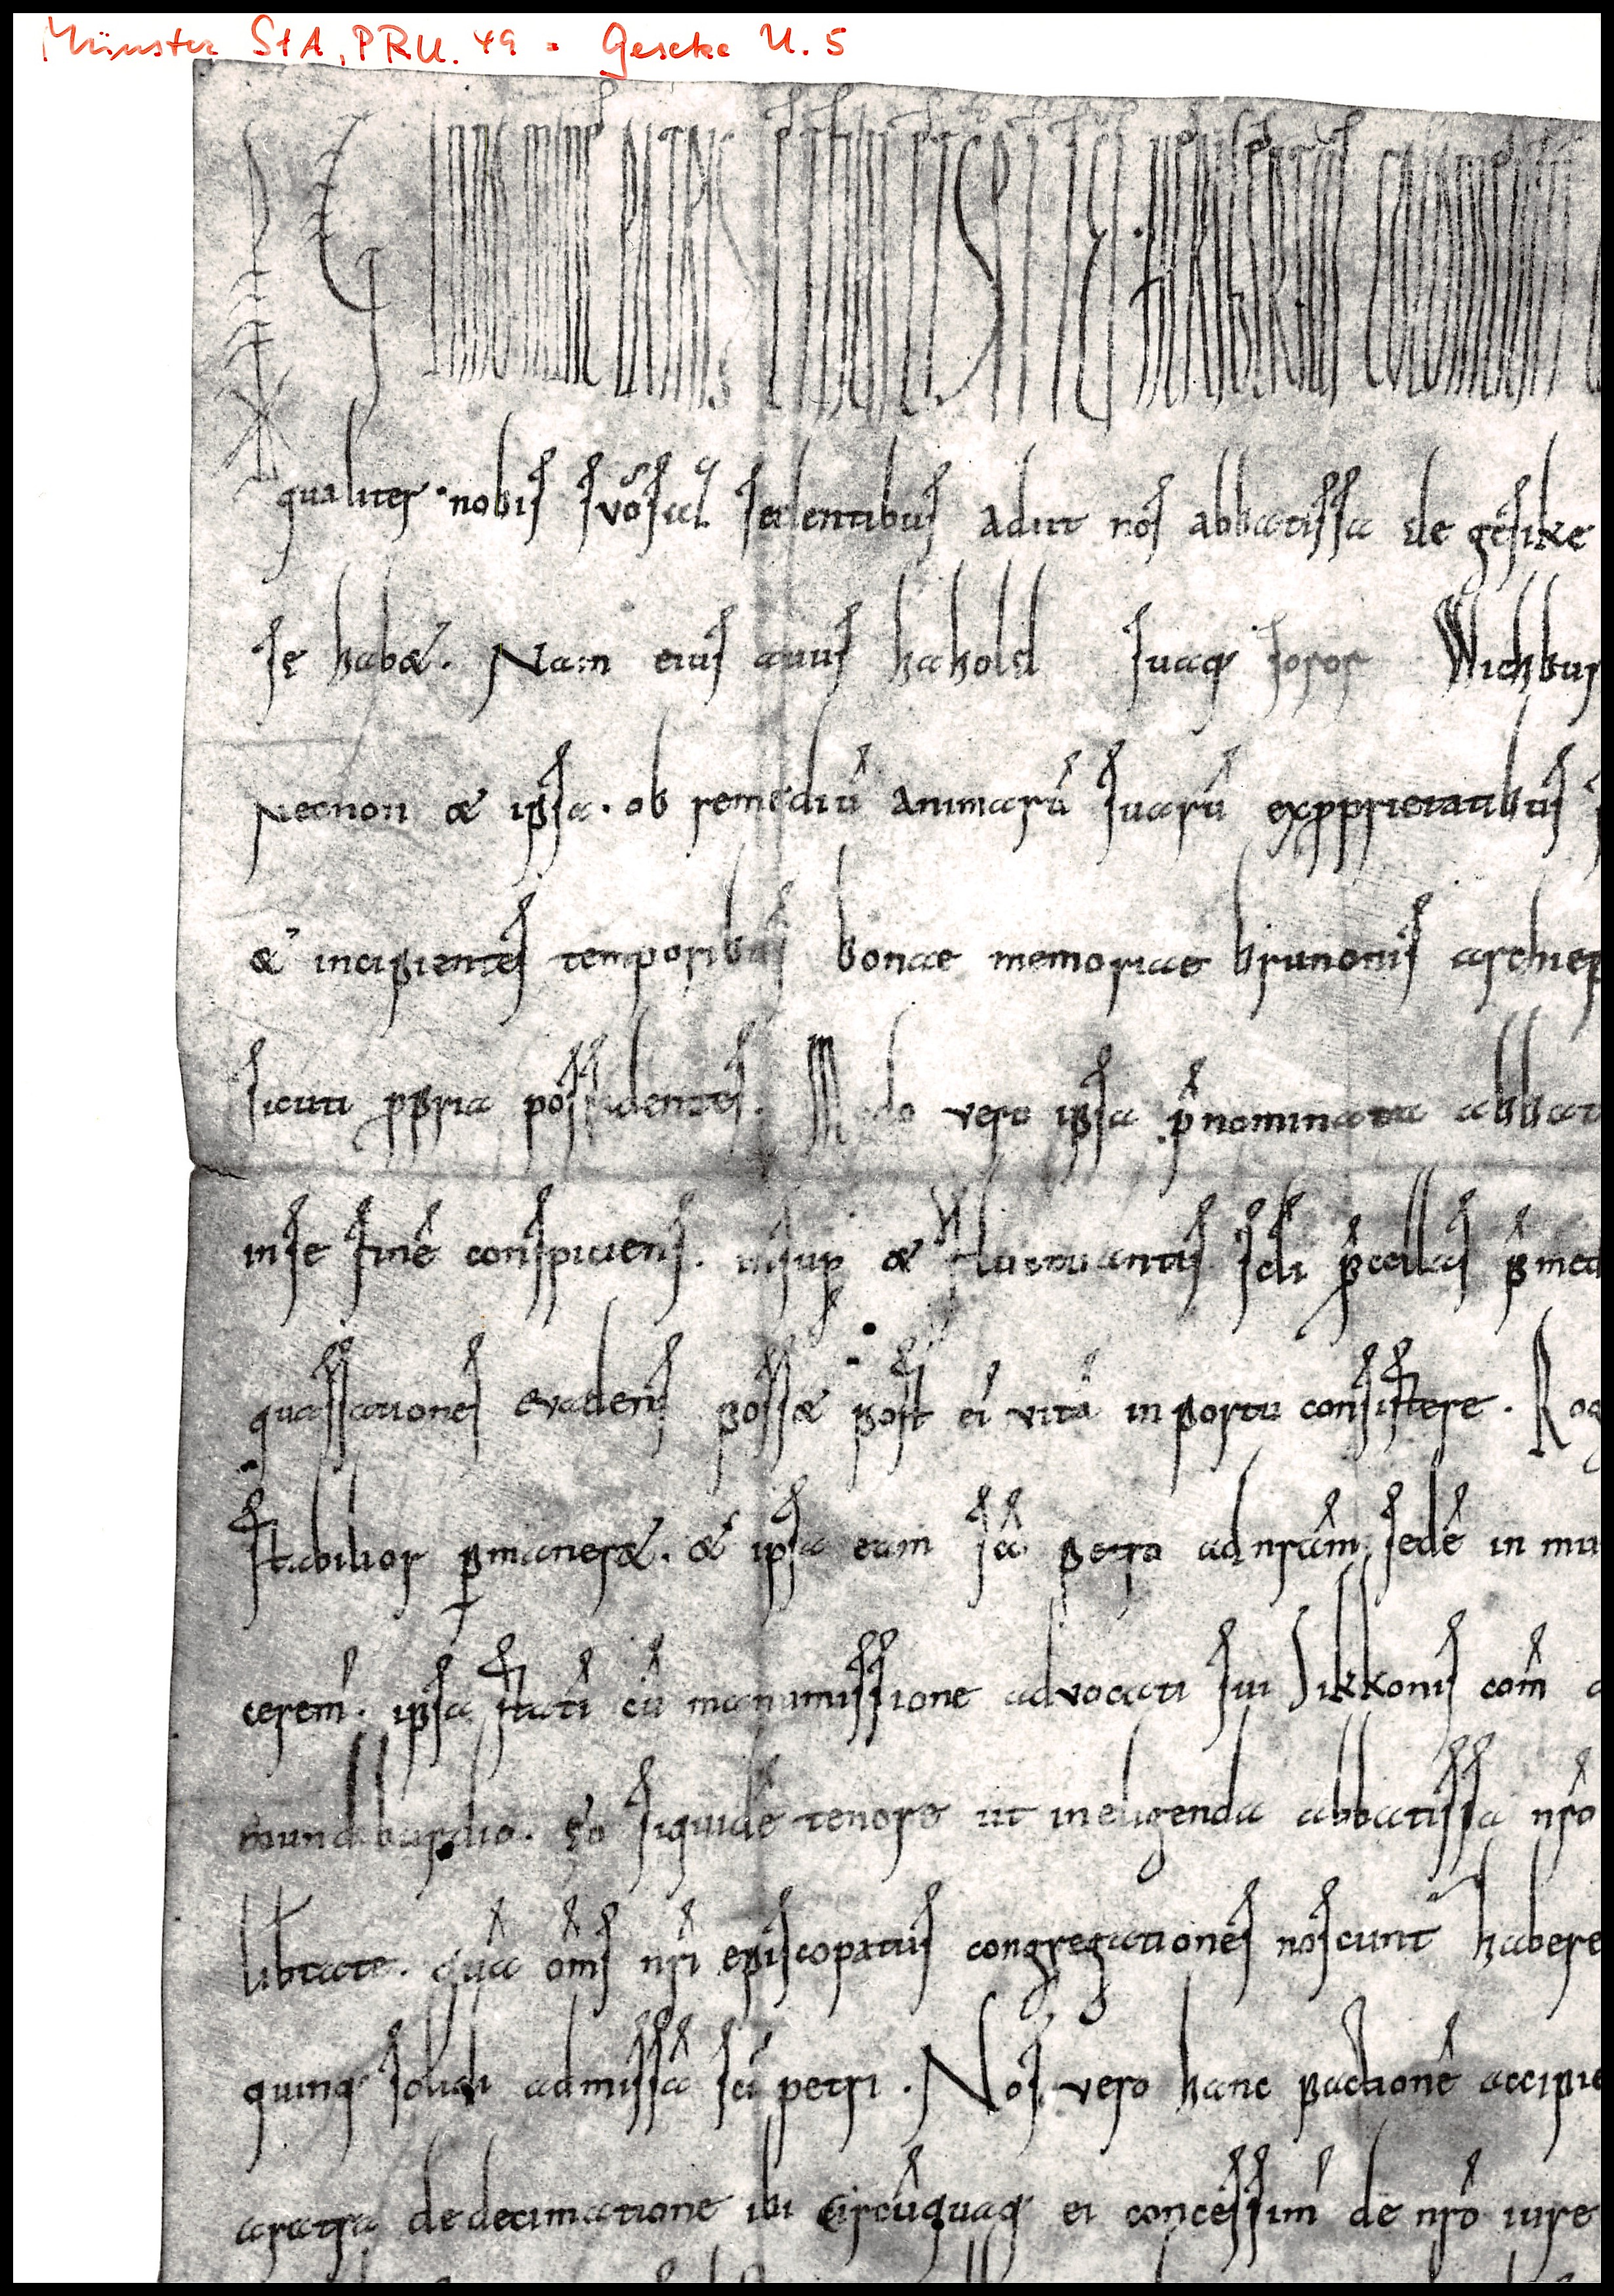 Münster StA, PRU. 49 = Geseke U. 5
IN NOMINE PATRIS & FILII & SP̅S S̅C̅I HERIBERTUS COLONIENSIU̅
qualiter nobis sedentibus adiit nos abbatissa de gesike
sę habet. Nam eius auus hahold suaq; soror Wichbur
Necnon & ipsa. ob remediu̅ animaru̅ suaru̅ exproprietatibus
& incipientes temporibus bonae memoriae brunonis archiep
sicuti propria possidentes. Modo vero ipsa p̅nominata abbat
inse fine̅ conspiciens. insup & fluctuantis scl̅i p̅cellas
quassationes evadens poss& post ei̅ vita̅ in portu consistere. Rog
stabilior pmaner&. & ipsa eam s̅c̅o petro adnr̅am sede̅ in mu
cerem̅. ipsa stati̅ cu̅ manumissione advocati sui Sikkonis com̅
mundiburdio. eo siquide̅ tenore ut ineligenda abbatissa nr̅o
lib̅tate. qua̅ om̅s nr̅i episcopatus congregationes noscunt̅ habere
quinq; solidi admissa̅ s̅c̅i petri. Nos vero hanc pactione̅ accipie
aratra dedecimatione ibi circu̅quaq; ei concessim̅ de nr̅o iure